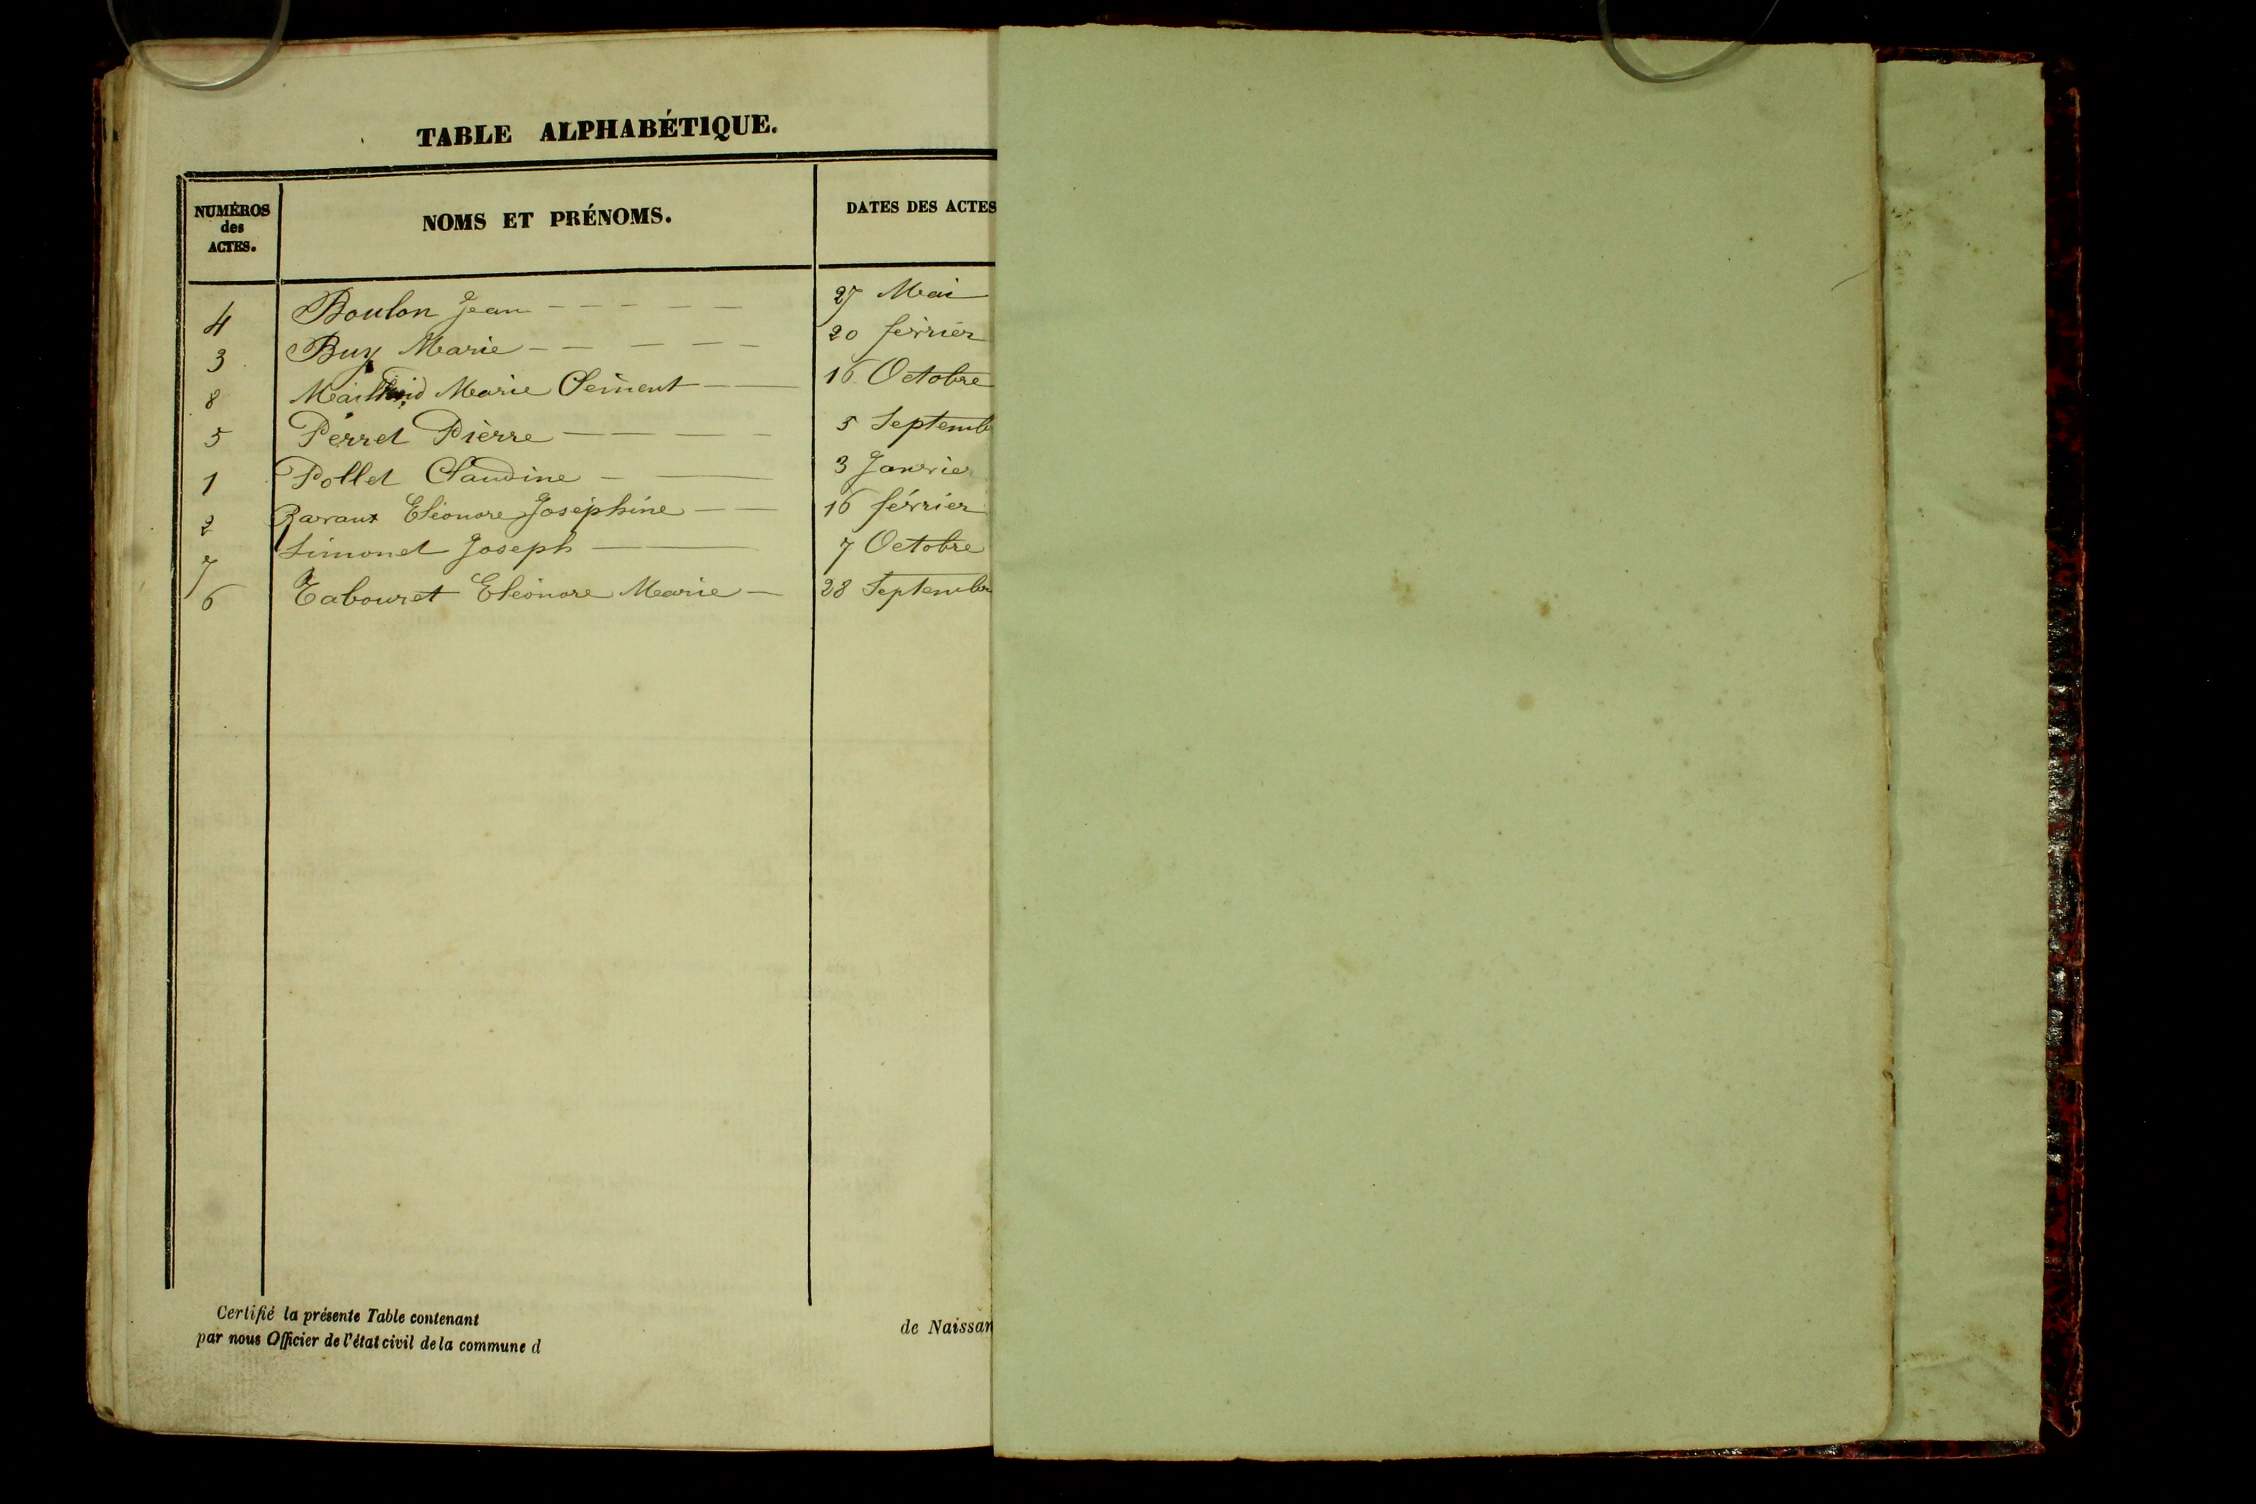 TABLE ALPHABÉTIQUE.
NUMÉROS
des
ACTES.
NOMS ET PRÉNOMS.
DATES DES ACTES
4 Boulon Jean 27 Mai
3 Buy Marie 20 février
8 Marie Clément 16 Octobre
5 Perret Pièrre 5 Septemb
1 Pollet Claudine 3 Janvier
2 Ravaux Eléonore Joséphine 16 février
7 Simonet Joseph 7 Octobre
6 Tabouret Eléonore Marie 28 Septembre
Certifié la présente Table contenant de Naissan
par nous Officier de l'état civil de la commune d